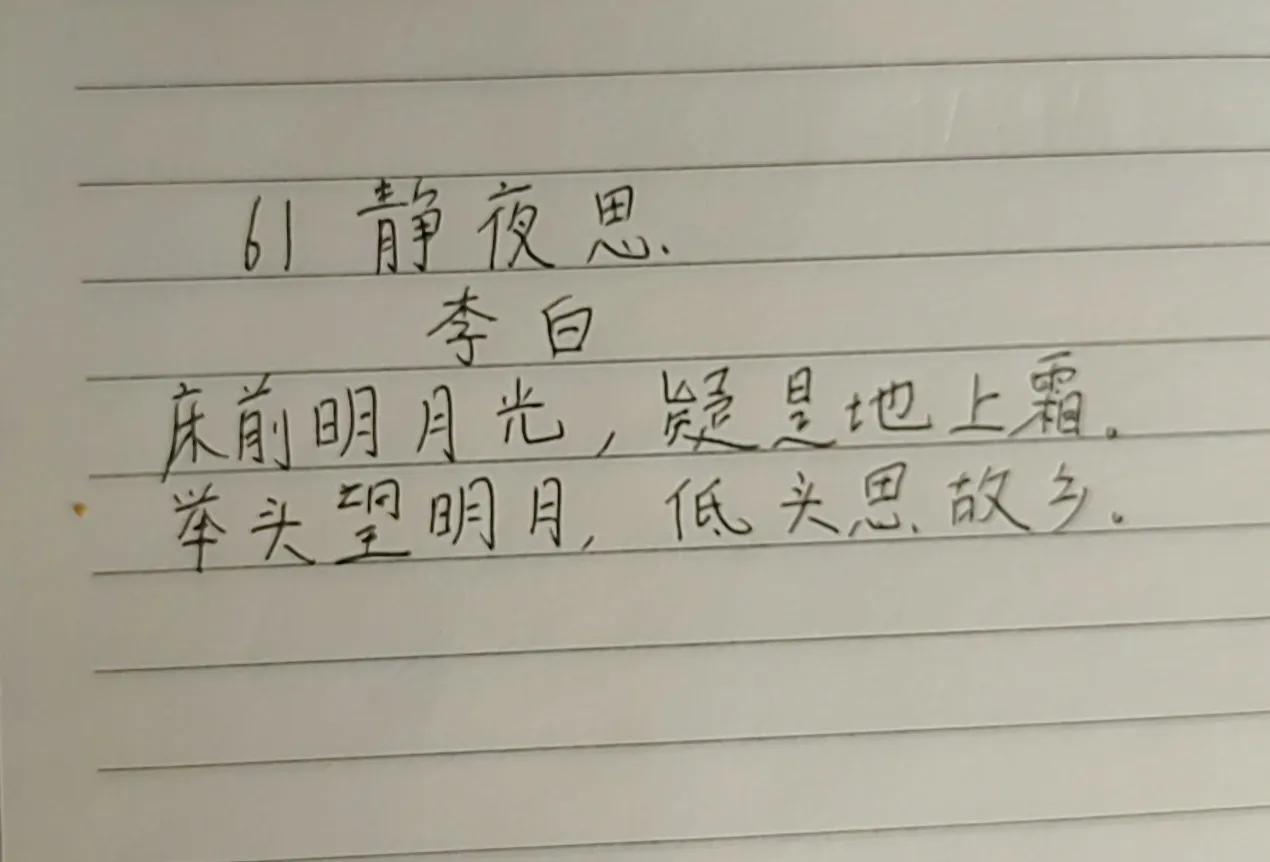 61 静夜思.
李白
床前明月光,疑是地上霜.
举头望明月,低头思故乡.